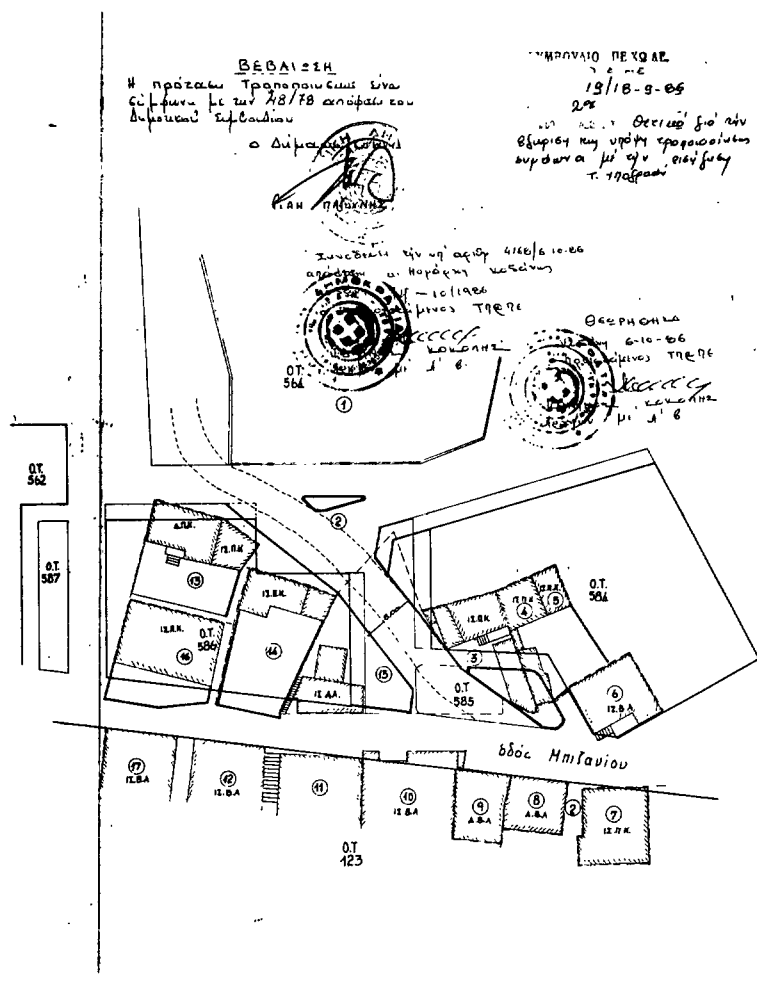 ΒΕΒΑΙΩΣΗ
Η πρόταση Τροποποιησης είναι
σύμφωνη με την 48/78 απόφαση του
Δημοτικού Συμβουλίου
ο Δήμαρχος
ΣΥΜΒΟΥΛΙΟ ΠΕ ΧΩ ΔΕ
19/18-9-86
2η
Θετικά για την
έγκριση της υπόψη τροποποίησης
συμφωνα με την εισήγηση
Τ. Υπογραφή
Συνοδεύει την υπ' αριθμ 4168/6.10.86
απόφαση κ. Νομάρχη Κοζάνης
-10/1986
ΤΠ&ΠΕ
ΚΟΚΟΛΗΣ
με Α' β.
ΘΕΩΡΗΘΗΚΕ
6-10-86
ΤΠ&ΠΕ
ΚΟΚΟΛΗΣ
με Α' β
Ο.Τ.
564
1
Ο.Τ.
562
Ο.Τ.
587
2
Δ.Π.Κ.
ΙΣ.Π.Κ
13
ΙΣ.Π.Κ.
Ο.Τ.
586
16
ΙΣ.Π.Κ.
14
ΙΣ.ΔΛ.
15
ΙΣ.Π.Κ.
ΙΣ.Π.Κ
4
ΙΣ.Π.Κ.
5
Ο.Τ.
584
3
Ο.Τ
585
6
ΙΣ.Β.Λ.
οδός Μπιζανίου
17
ΙΣ.Β.Λ
12
ΙΣ.Β.Λ.
11
10
ΙΣ.Β.Λ
9
Δ.Β.Λ
8
Δ.Β.Λ
2
7
ΙΣ.Π.Κ.
Ο.Τ
123